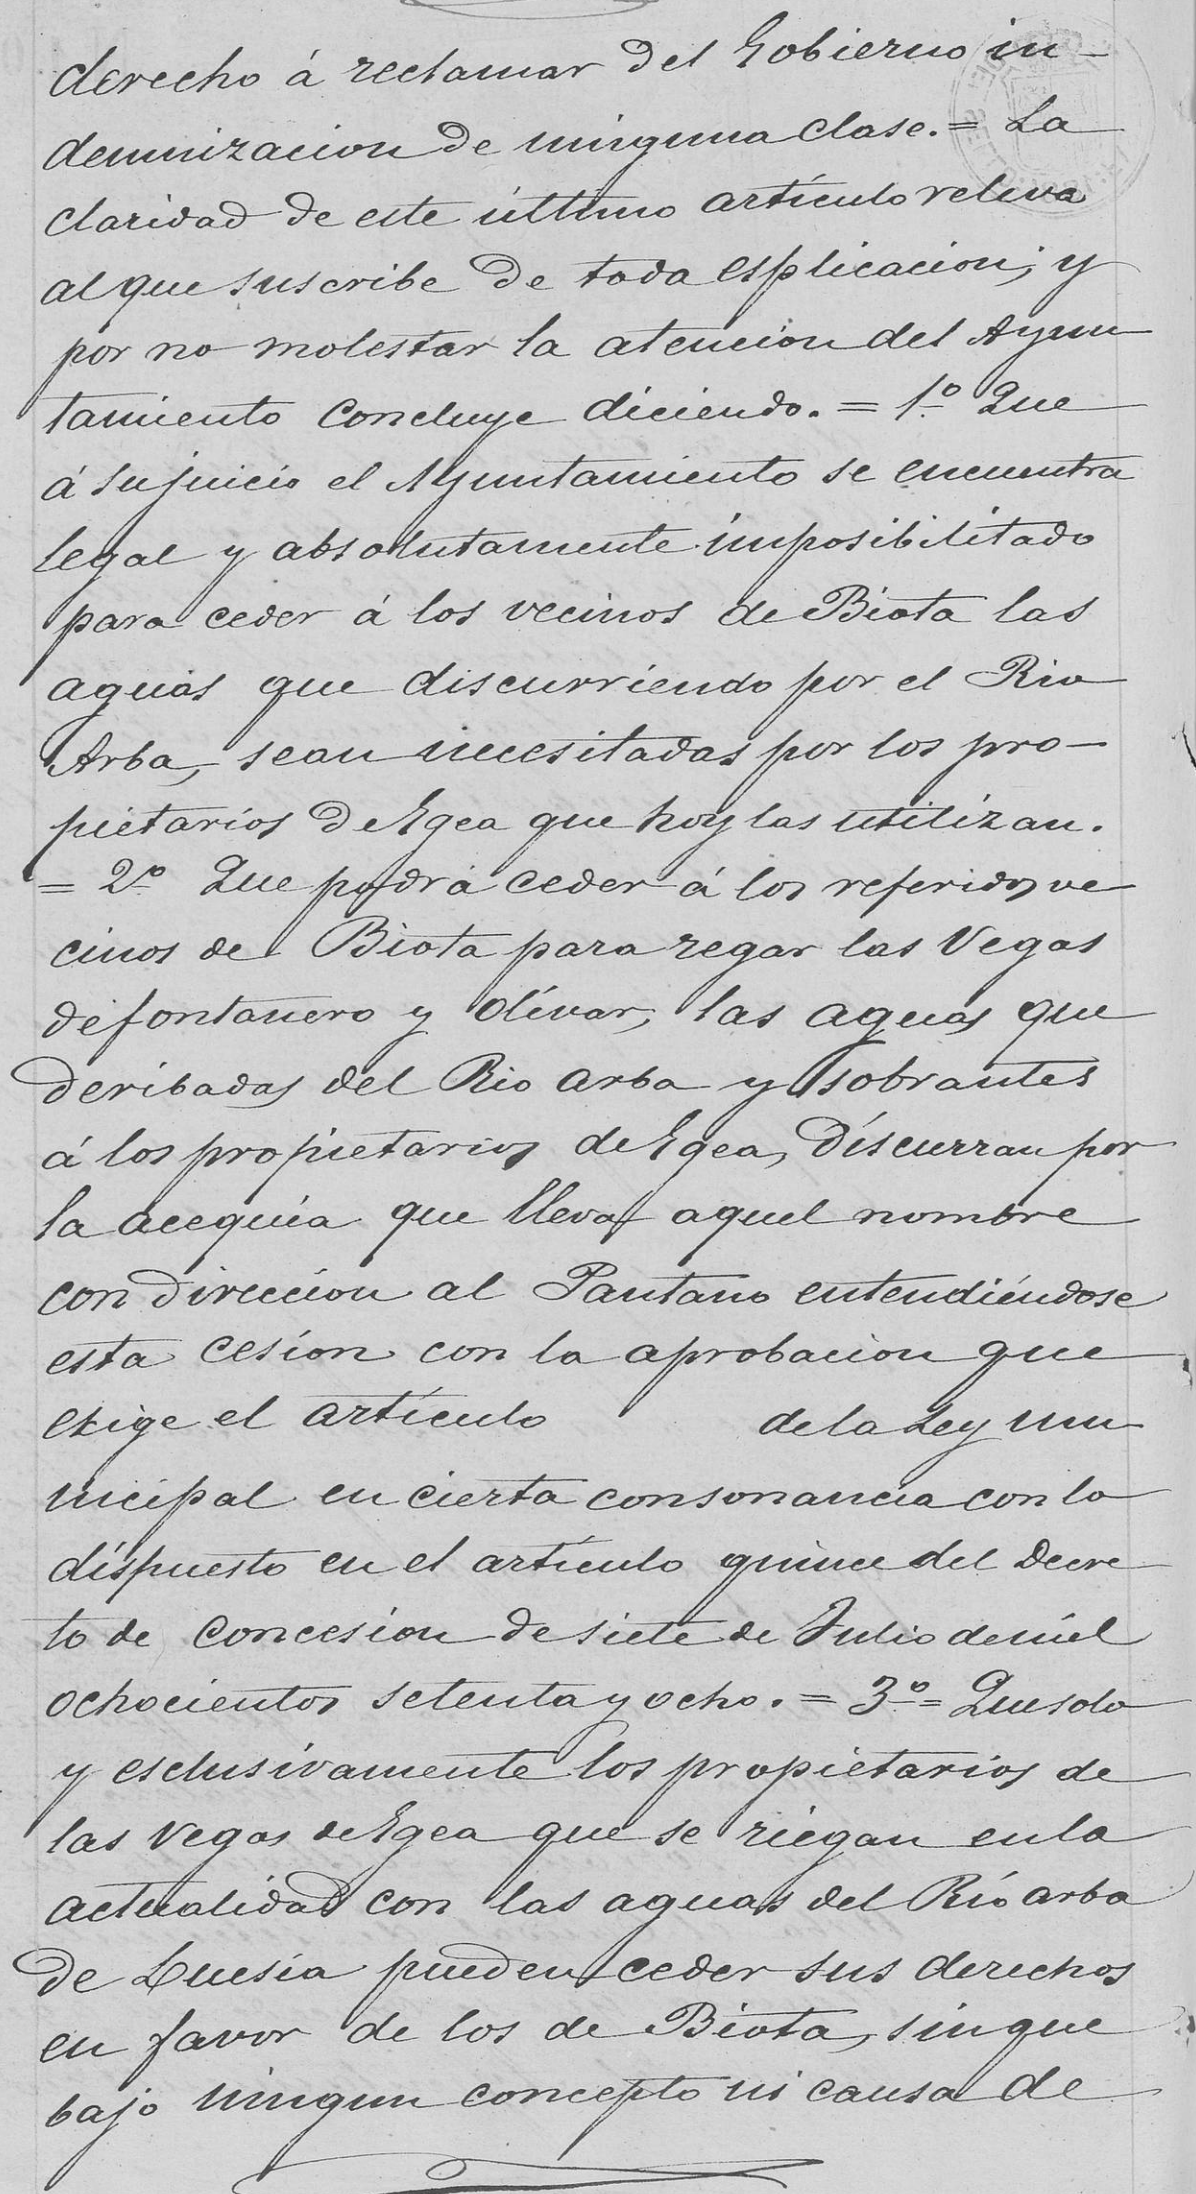 derecho á reclamar del Gobierno in-
demnizacion de ninguna clase. = La
claridad de este último artículo releva
al que suscribe de toda esplicacion; y
por no molestar la atencion del Ayun
tamiento concluye diciendo. = 1.º Que
á su juicio el Ayuntamiento se encuentra
legal y absolutamente imposibilitado
para ceder á los vecinos de Biota las
aguas que discurriendo por el Rio
Arba, sean necesitadas por los pro-
pietarios de Egea que hoy las utilizan.
= 2.º Que podrá ceder á los referidos ve
cinos de Biota para regar las Vegas
de fontanero y olivar, las aguas que
deribadas del Rio arba y sobrantes
á los propietarios de Egea, discurran por
la acequia que lleva aquel nombre
con direccion al Pantano entendiéndose
esta cesion con la aprobacion que
exige el artículo de la Ley mu
nicipal en cierta consonancia con lo
dispuesto en el artículo quince del Decre
to de concesion de siete de Julio de mil
ochocientos setenta y ocho. = 3.º = Que solo
y esclusivamente los propietarios de
las Vegas de Egea que se riegan en la
actualidad con las aguas del Río arba
de Luesia pueden ceder sus derechos
en favor de los de Biota, sin que
bajo ningun concepto ni causa de